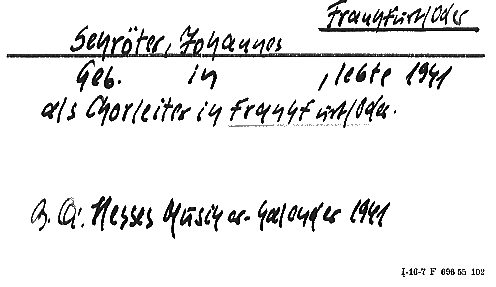 Frankfurt/Oder
Schröter, Johannes
Geb. in , lebte 1941
als Chorleiter in Frankfurt/Oder.
B. Q.: Hesses Musiker-Kalender 1941
I-16-7 F 696 55 102